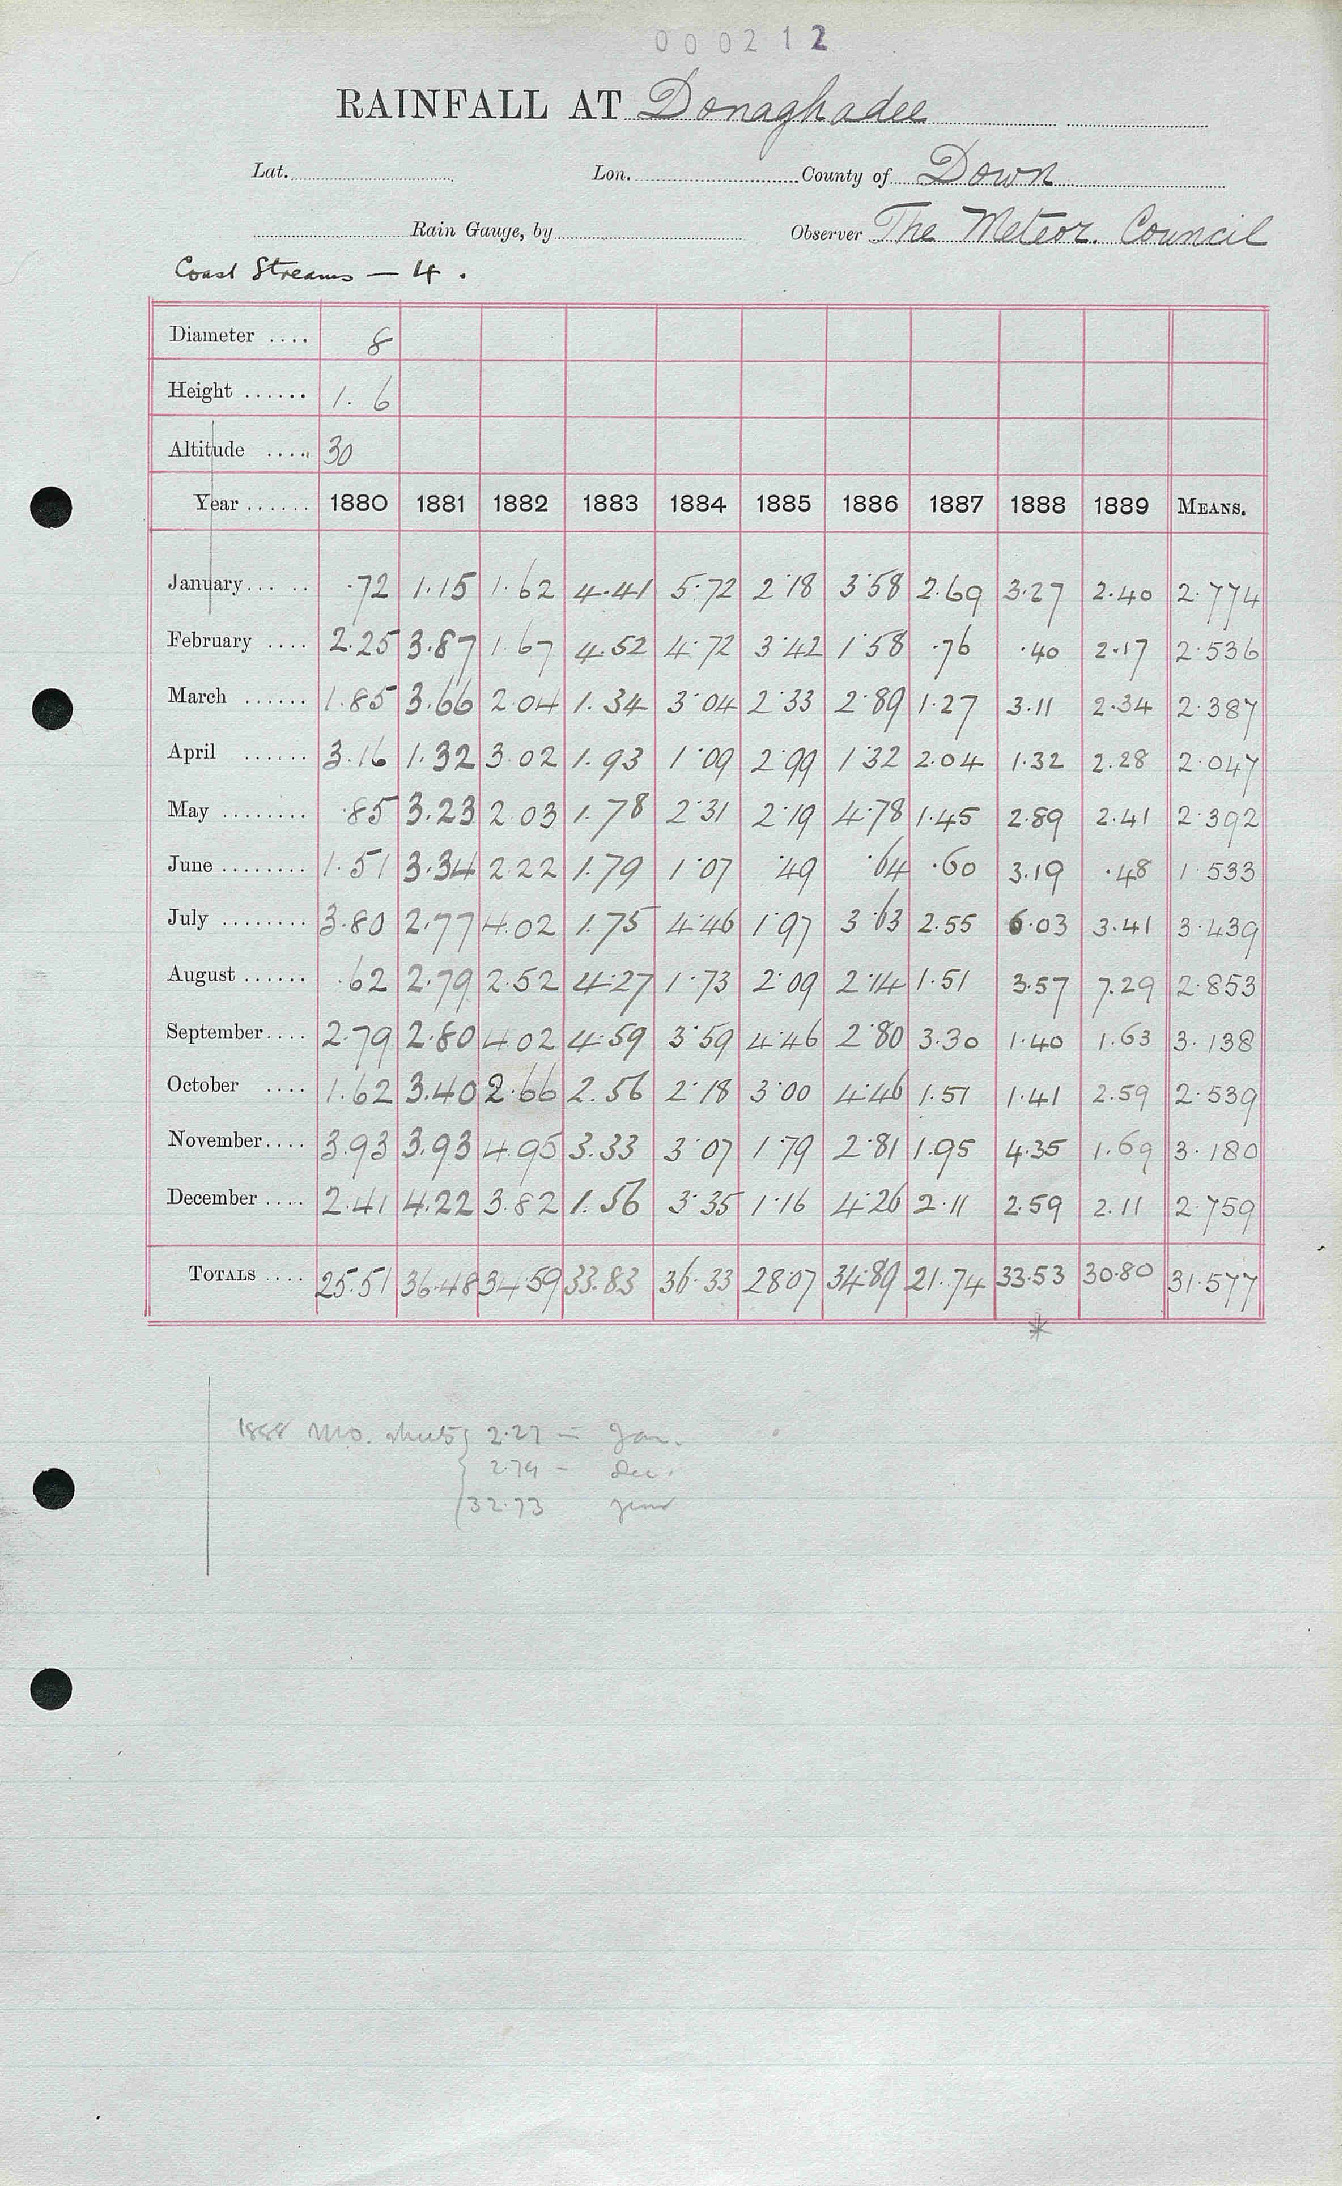 000212
RAINFALL AT Donaghadee
Lat. Lon. County of Down
Rain Gauge, by Observer The Meteor. Council
Coast Streams — 4.
Diameter .... 8
Height ...... 1.6
Altitude .... 30
Year ...... 1880 1881 1882 1883 1884 1885 1886 1887 1888 1889 MEANS.
January ..... .72 1.15 1.62 4.41 5.72 2.18 3.58 2.69 3.27 2.40 2.774
February .... 2.25 3.87 1.67 4.52 4.72 3.42 1.58 .76 .40 2.17 2.536
March ...... 1.85 3.66 2.04 1.34 3.04 2.33 2.89 1.27 3.11 2.34 2.387
April ...... 3.16 1.32 3.02 1.93 1.09 2.99 1.32 2.04 1.32 2.28 2.047
May ........ .85 3.23 2.03 1.78 2.31 2.19 4.78 1.45 2.89 2.41 2.392
June ........ 1.51 3.34 2.22 1.79 1.07 .49 .64 .60 3.19 .48 1.533
July ........ 3.80 2.77 4.02 1.75 4.46 1.97 3.63 2.55 6.03 3.41 3.439
August ...... .62 2.79 2.52 4.27 1.73 2.09 2.14 1.51 3.57 7.29 2.853
September .... 2.79 2.80 4.02 4.59 3.59 4.46 2.80 3.30 1.40 1.63 3.138
October .... 1.62 3.40 2.66 2.56 2.18 3.00 4.46 1.51 1.41 2.59 2.539
November .... 3.93 3.93 4.95 3.33 3.07 1.79 2.81 1.95 4.35 1.69 3.180
December .... 2.41 4.22 3.82 1.56 3.35 1.16 4.26 2.11 2.59 2.11 2.759
TOTALS .... 25.51 36.48 34.59 33.83 36.33 28.07 34.89 21.74 33.53 30.80 31.577
*
1888 M.O. sheets { 2.27 — Jan.
2.74 — Dec.
32.73 year